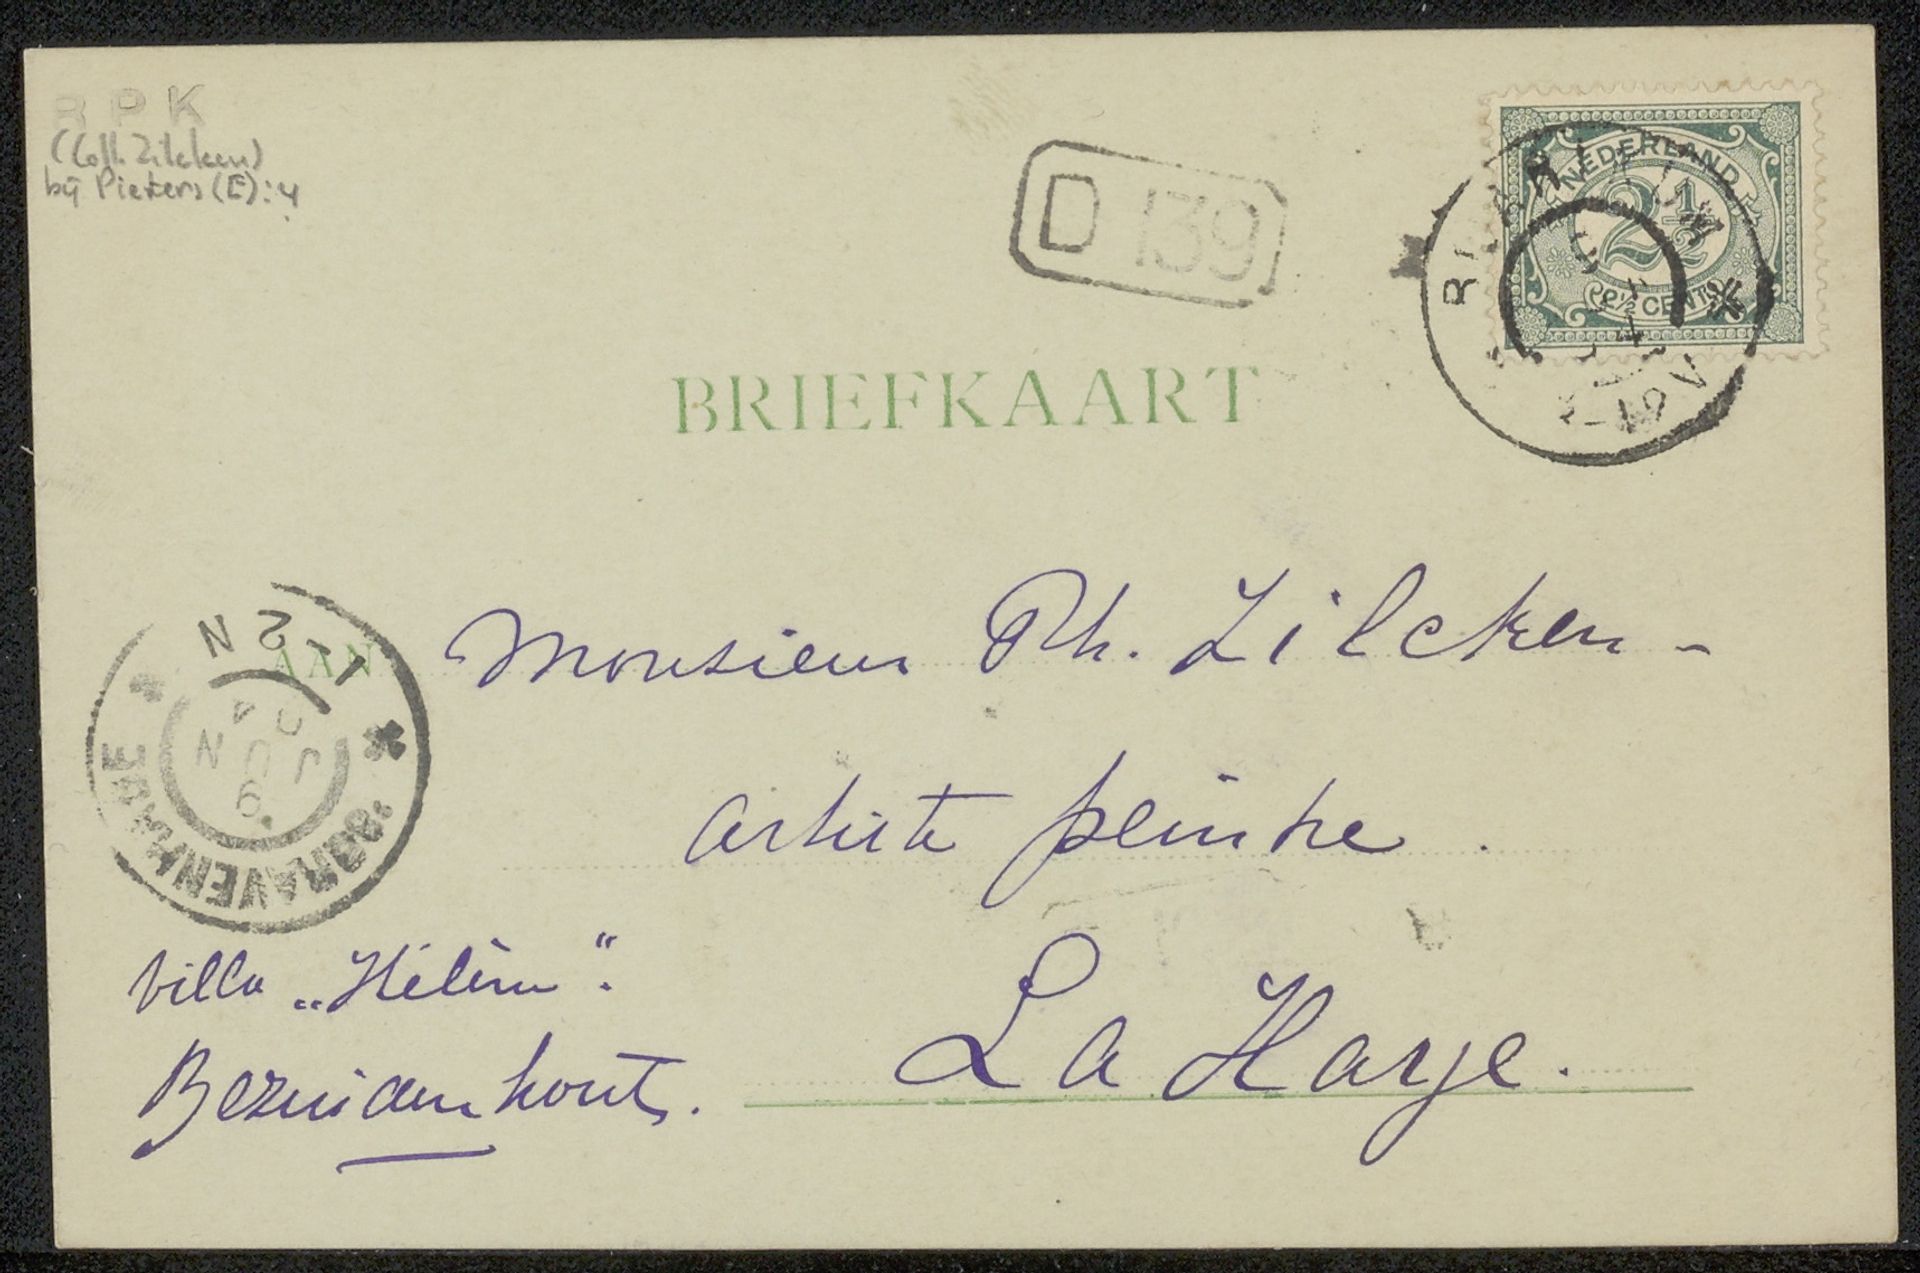 RPK
(Coll. Zilcken)
bij Pieters (E): 4
D 139
NEDERLAND
2½
2½ CENT
BRIEFKAART
1-2 N
'SGRAVENHAGE
6
JUN
04
AAN
Monsieur Ph. Zilcken -
artiste peintre.
villa „Hélène".
La Haye.
Bezuidenhout.